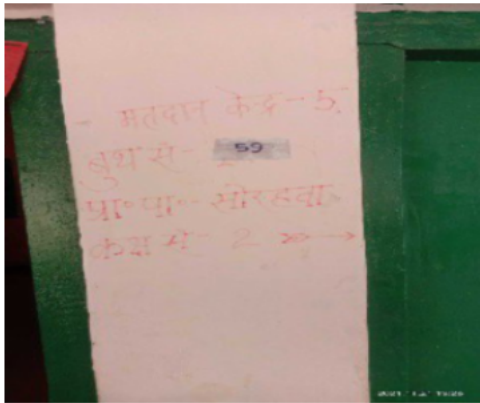 - मतदान केन्द्र - 5
बुथ सं - 59
प्रा॰ पा॰ - सोरहवा
कक्ष सं - 2